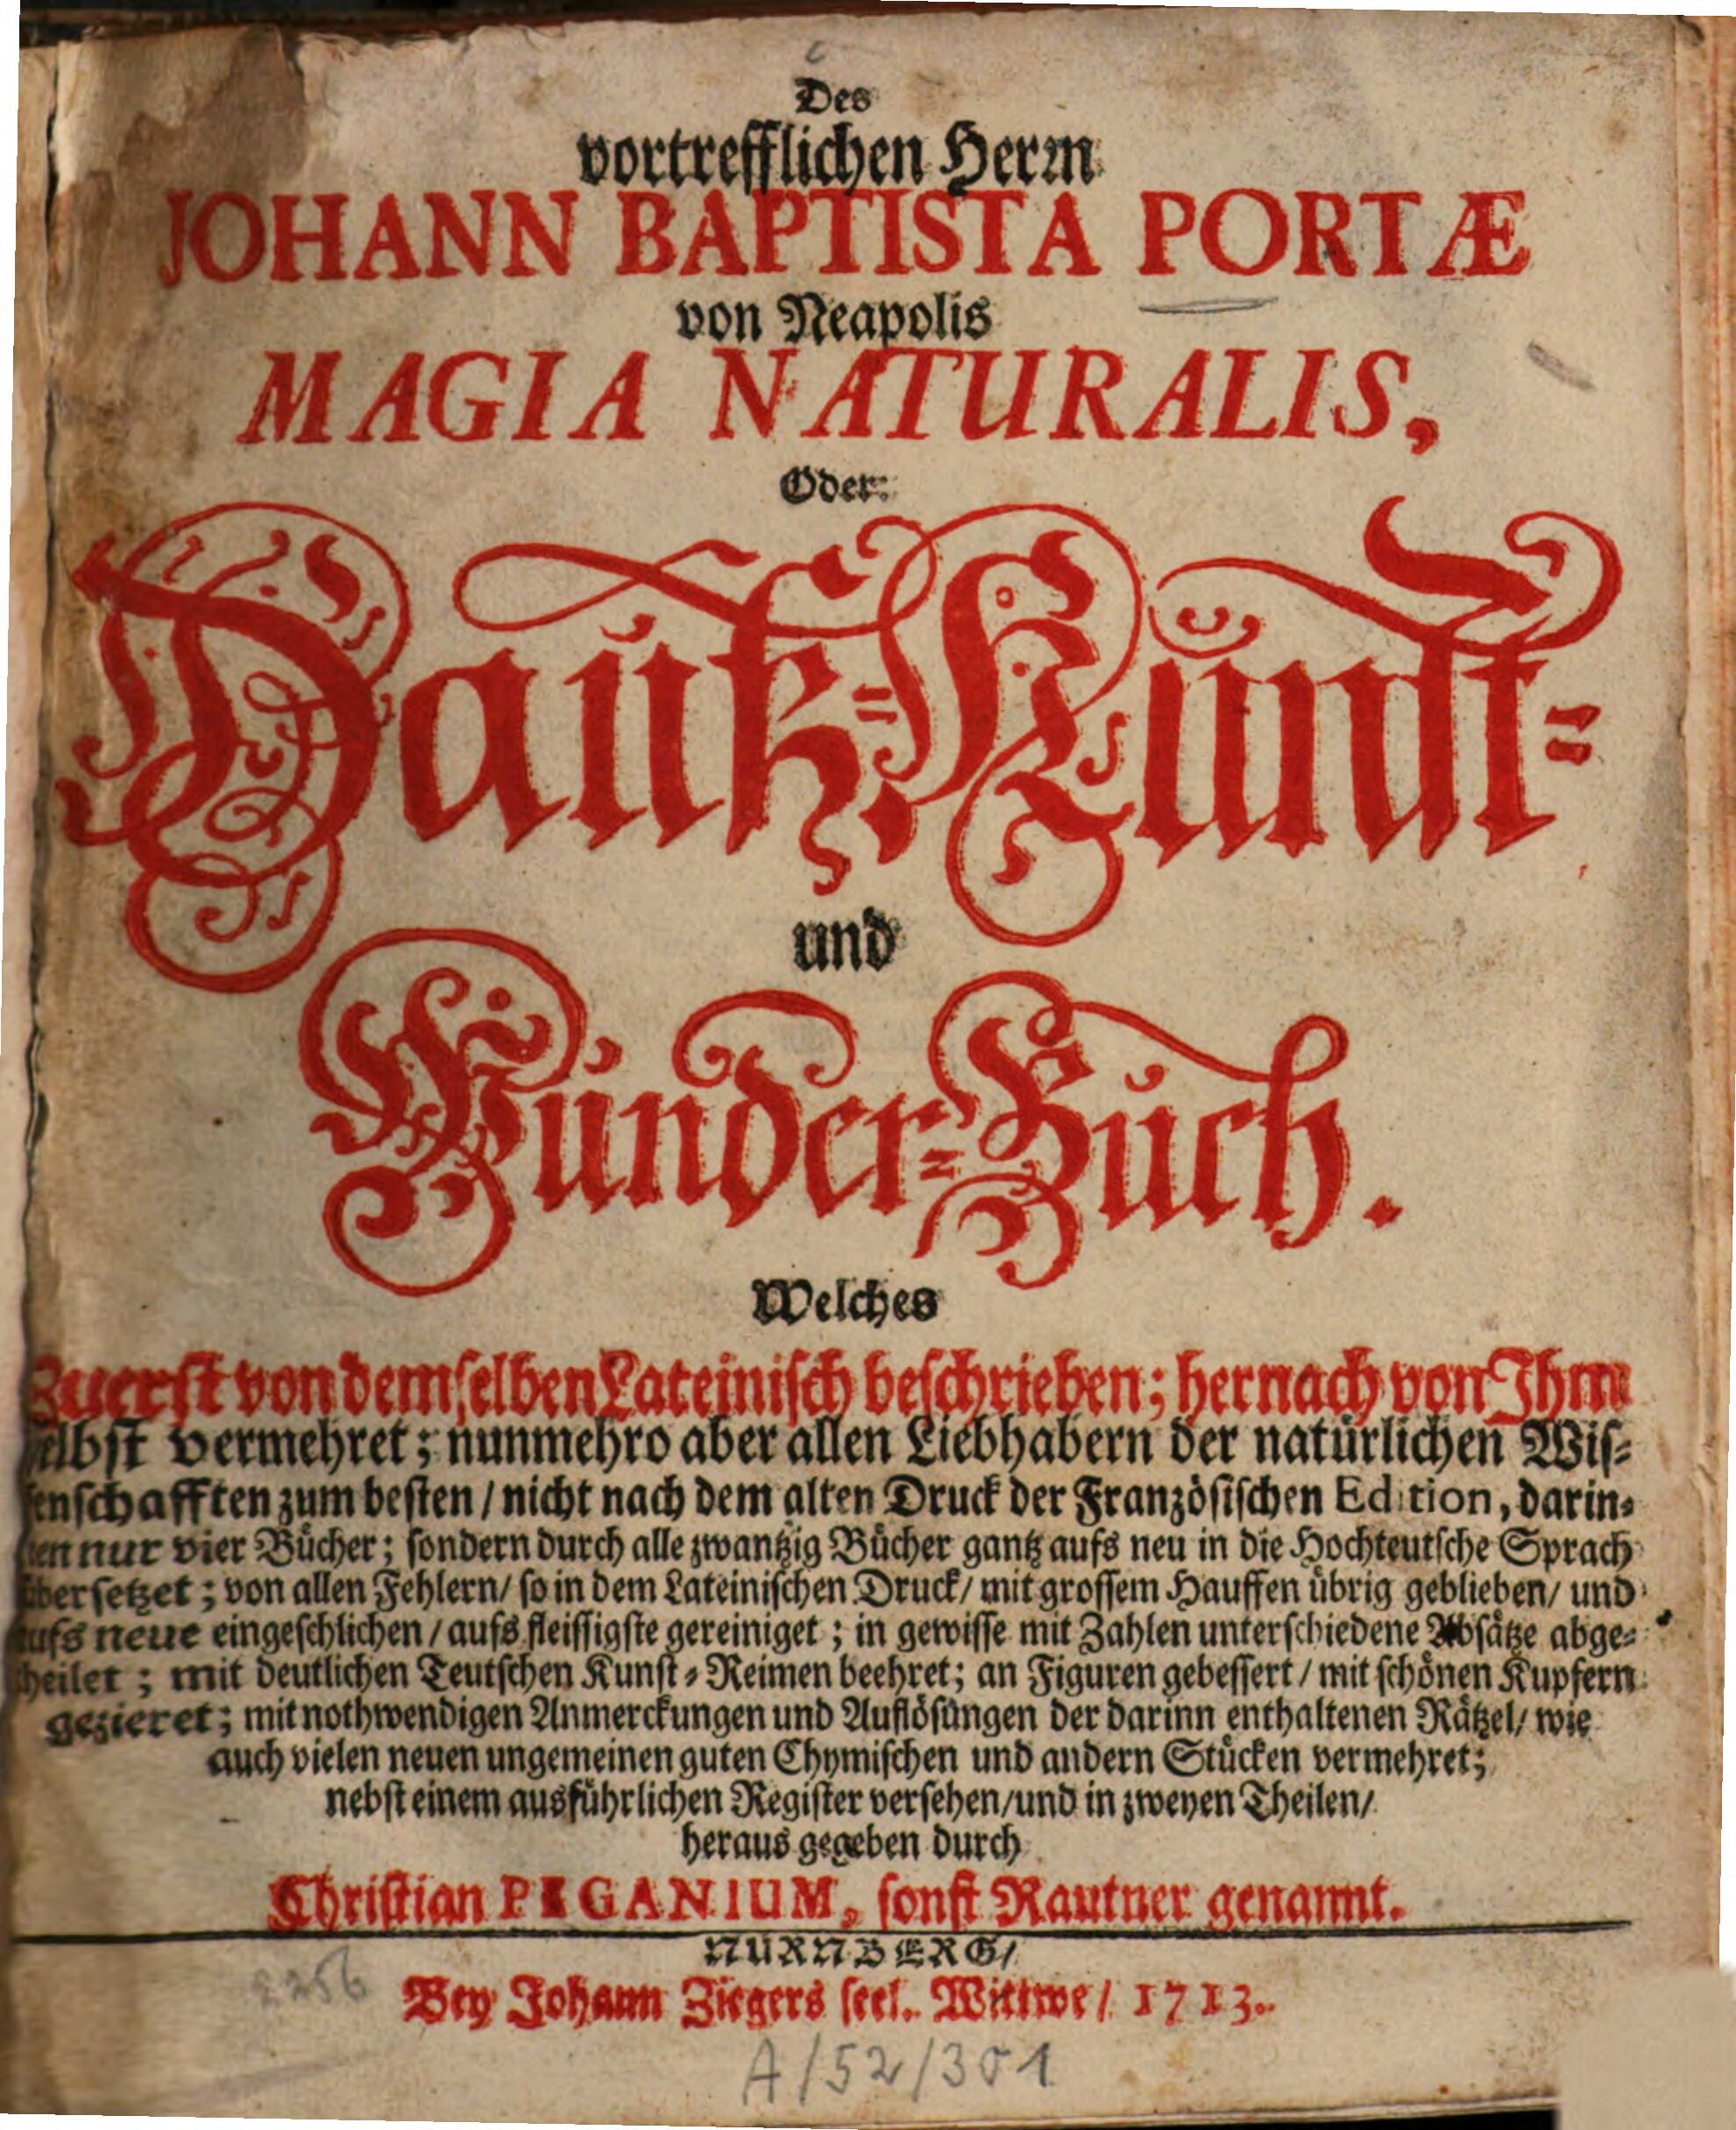 Des
vortrefflichen Herrn
JOHANN BAPTISTA PORTÆ
von Neapolis
MAGIA NATURALIS,
Oder:
Hauß-Kunst-
und
Wunder-Buch.
Welches
Zuerst von demselben Lateinisch beschrieben; hernach von Ihm
selbst vermehret; nunmehro aber allen Liebhabern der natürlichen Wis-
senschafften zum besten / nicht nach dem alten Druck der Französischen Edition, darin-
nen nur vier Bücher; sondern durch alle zwantzig Bücher gantz aufs neu in die Hochteutsche Sprach
übersetzet; von allen Fehlern/ so in dem Lateinischen Druck/ mit grossem Hauffen übrig geblieben/ und
aufs neue eingeschlichen / aufs fleissigste gereiniget; in gewisse mit Zahlen unterschiedene Absätze abge-
theilet; mit deutlichen Teutschen Kunst-Reimen beehret; an Figuren gebessert / mit schönen Kupfern
gezieret; mit nothwendigen Anmerckungen und Auflösungen der darinn enthaltenen Rätzel/ wie
auch vielen neuen ungemeinen guten Chymischen und andern Stücken vermehret;
nebst einem ausführlichen Register versehen/ und in zweyen Theilen/
heraus gegeben durch
Christian PEGANIUM, sonst Rautner genannt.
NURNBERG/
Bey Johann Ziegers seel. Wittwe / 1713.
2256
A/52/301